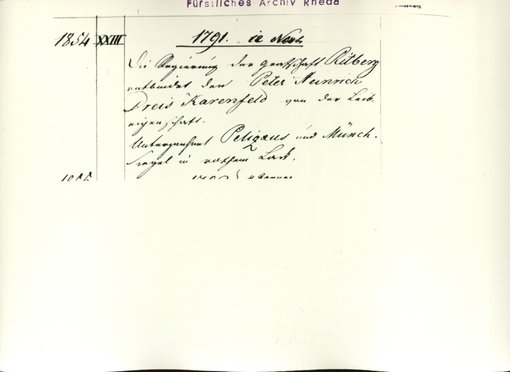 Fürstliches Archiv Rheda
1854 XXIII 1791. in Nov.
Die Regierung der Grafschaft Ritberg
entbindet den Peter Heinrich
Preis Karenfeld von der Leib-
eigenschaft.
Unterzeichnet Pelizaeus und Münch.
Siegel in rothem Lack.